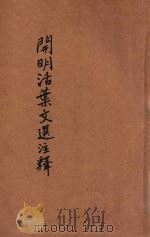 開明活葉文選注釋